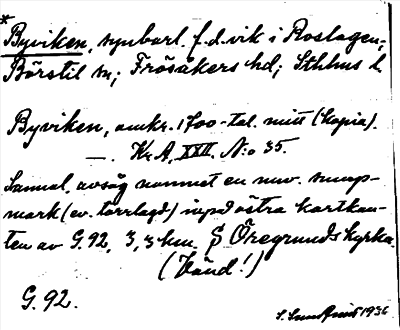 *
Byviken, synbarl. f.d. vik i Roslagen;
Börstil sn; Frösåkers hd; Sthlms l.
Byviken, omkr. 1700-tal. mitt (kopia).
—. Kr. A. XXII. N:o 35.
Sannol. avsåg namnet en nuv. sump-
mark (ev. torrlagd,) inpå östra kartkan-
ten av G.92, 3,3 km. S Öregrunds kyrka.
(Vänd!)
G. 92.
1936